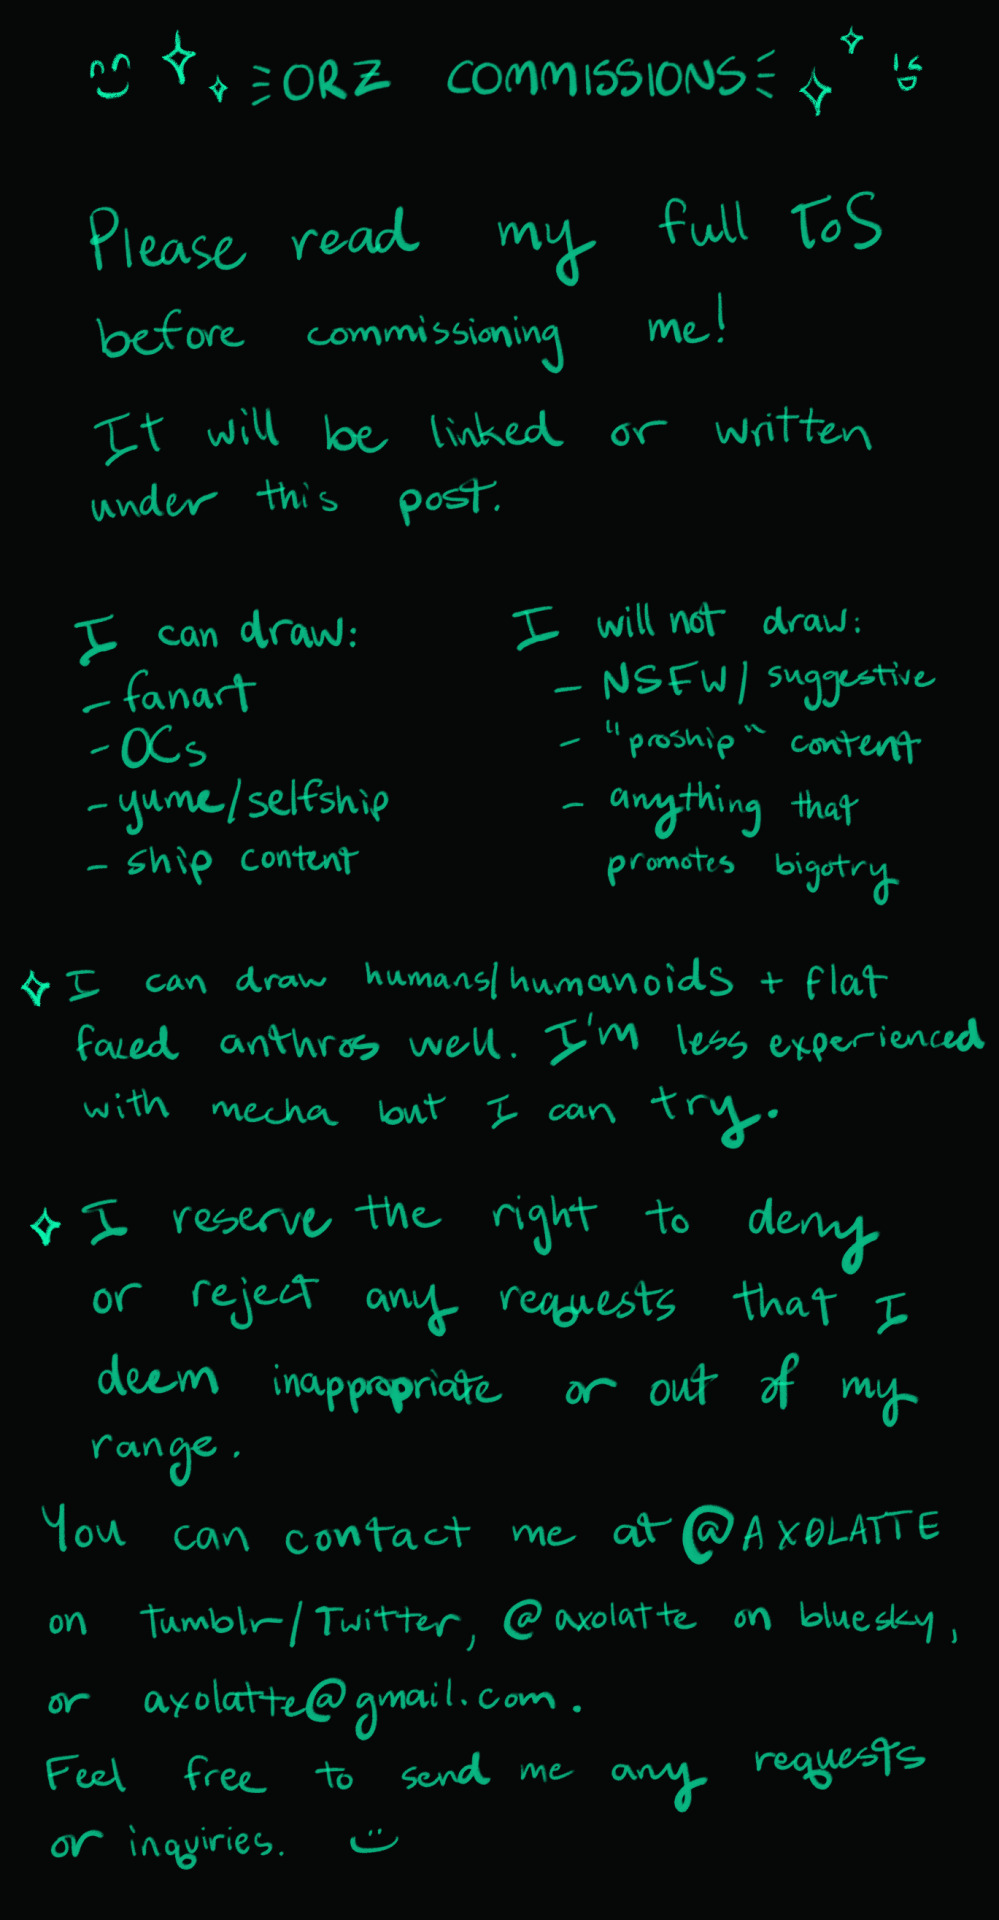 ORZ COMMISSIONS
Please read my full ToS
before commissioning me!
It will be linked or written
under this post.
I can draw:
- fanart
- OCs
- yume/selfship
- ship content
I will not draw:
- NSFW/suggestive
- "proship" content
- anything that
promotes bigotry
I can draw humans/humanoids + flat
faced anthros well. I'm less experienced
with mecha but I can try.
I reserve the right to deny
or reject any requests that I
deem inappropriate or out of my
range.
You can contact me at @AXOLATTE
on Tumblr/Twitter, @axolatte on bluesky,
or axolatte@gmail.com.
Feel free to send me any requests
or inquiries. :)